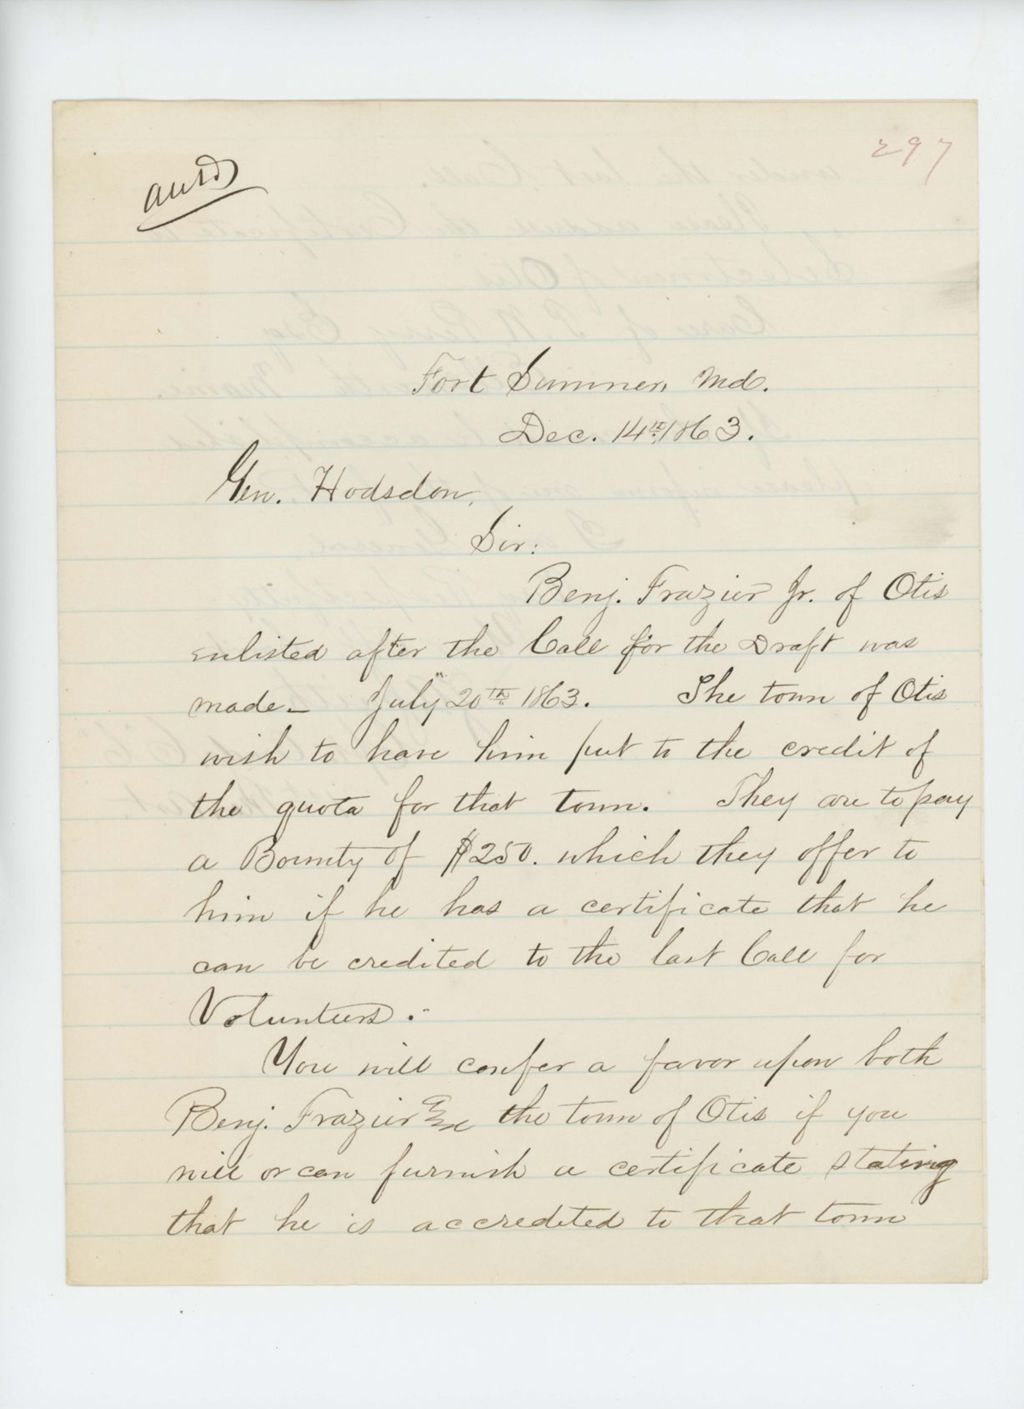 297
ansd
Fort Sumner, Md.
Dec. 14th 1863.
Gen. Hodsdon,
Sir:
Benj. Frazier Jr. of Otis
enlisted after the Call for the Draft was
made – July 20th 1863. The town of Otis
wish to have him put to the credit of
the quota for that town. They are to pay
a Bounty of $250. which they offer to
him if he has a certificate that he
can be credited to the last Call for
Volunteers.
You will confer a favor upon both
Benj. Frazier & the town of Otis if you
will or can furnish a certificate stating
that he is accredited to that town